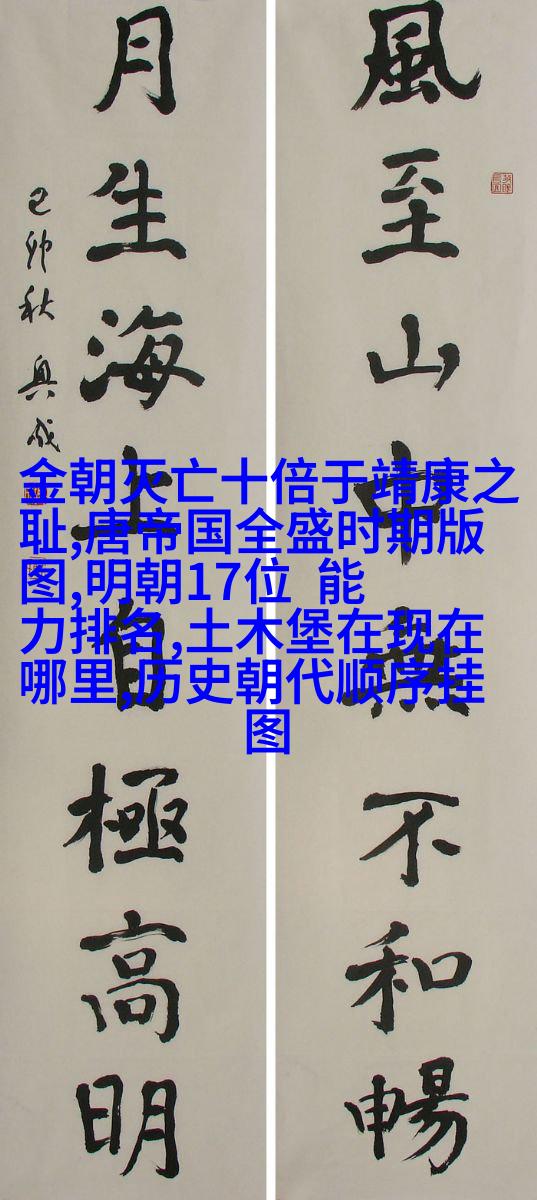 風至山中無不和暢
月生海上自極高明
己卯秋 奥成
金朝灭亡十倍于靖康之
耻,唐帝国全盛时期版
图,明朝17位 能
力排名,土木堡在现在
哪里,历史朝代顺序挂
图